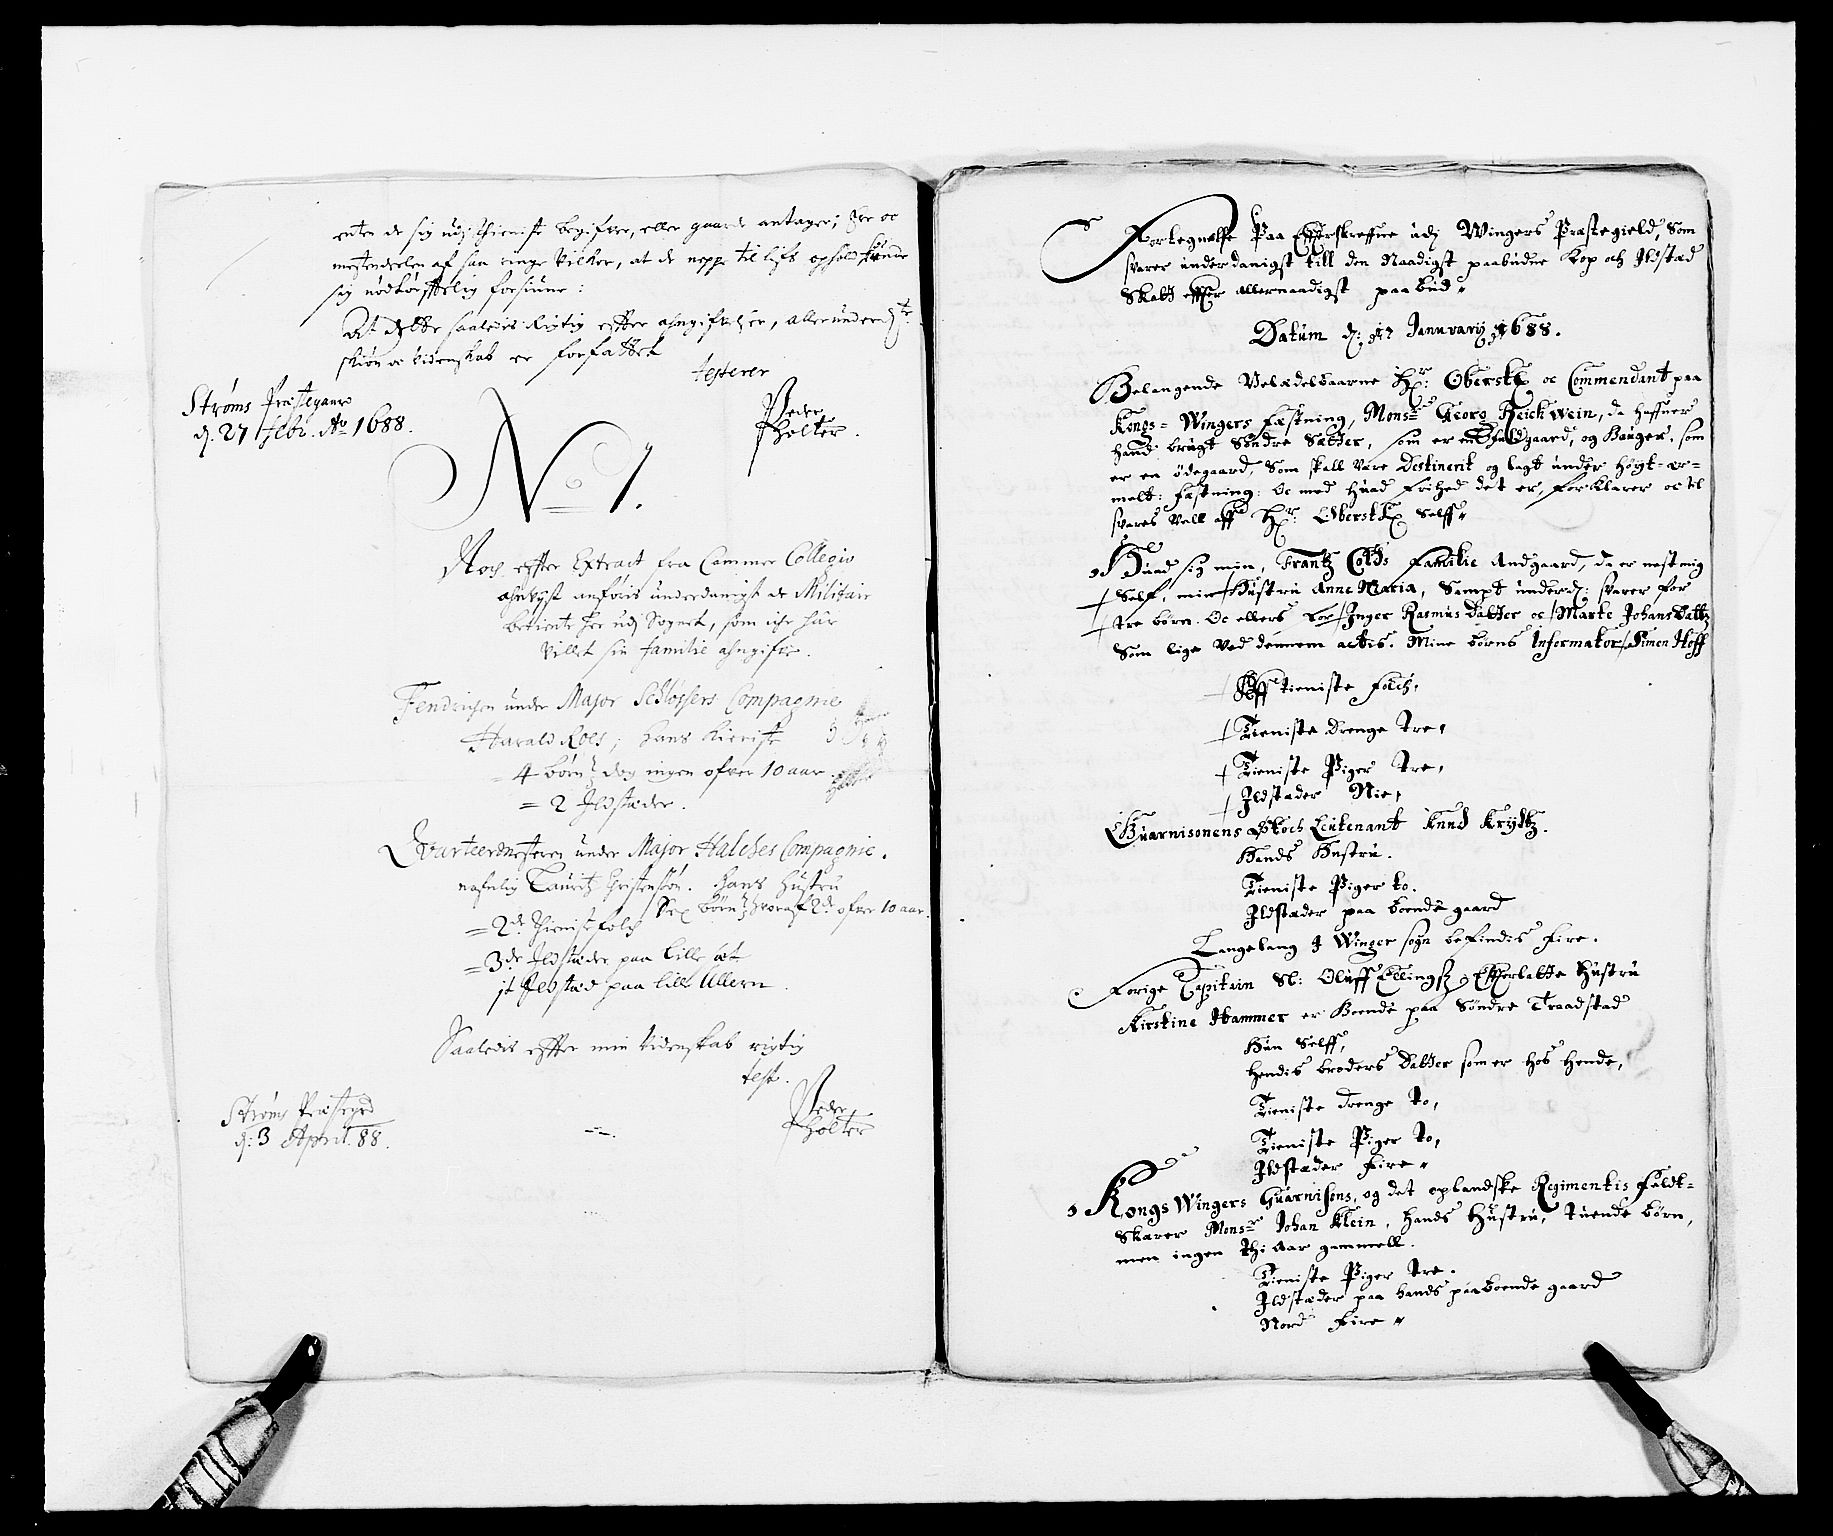 enten de sig udj thieniste begifver, eller gaarde antager; Ere oc
mestendeelen af saa ringe vilkor, at de neppe til lifs ophold kunde
sig nødtørfftelig forsiune:
At dette saaledis Rigtig effter angifvelser, allerunderdte
skiøn oc videnskab er forfattet
testerer
Strøms Præstegaard
d. 27 Feb: Ao 1688.
Peder
Holter.
No 1.
Noch effter Extract fra Cammer Collegio
anføris underdanigst de Militair
betiente her udj Sognet, som icke har
villet sin familie angifve.
Fendrichen under Major Schløssers Compagnie
Harald Roes; hans kieriste
= 4 børn dog ingen ofver 10 aar.
= 2 Ildstæder.
Qvarteermesteren under Major Halches Compagnie.
nafnlig Lauritz Christensøn. hans hustru
Sex børn hvoraf 2de ofver 10 aar.
= 2de Thienistefolch
= 3de Ildstæder paa lille
it Ildstæd paa lille Ullern.
Saaledis effter min videnskab rigtig
test.
Strøms Præstegrd
d: 3 April. 88.
Peder
Holter
Fortegnelsse Paa Efferskreffne udj Wingers Præstegield, Som
svarer underdanigst till den Naadigst paabudne Kop och Ildstæd
Skatt effter allernaadigst paabud"
Datum d: 17 Januarij 1688.
Belangende Velædelbaarne Hr: Oberst oc Commendant paa
Kongs= Wingers Fæstning, Monsr Georg Reichwein, da haffuer
hand brugt Søndre Sætter, som er en fuldgaard, og Bauger, som
er en ødegaard, Som skall være Destinerit og lagt under høyt-er=
melt: Fæstning: Oc med huad Frihed det er, forklarer oc til
svares vell aff Hr: Oberst Selff"
Huad sig min, Frantz Colds Familie Andgaard, da er nest mig
Self, min Hustru Anne Maria, Sampt underd: svarer for
tre børn. Oc ellers for Inger Rasmus Datter oc Marte Johans Dattr
Som lige ved dennem actis. Mine børns Informator Simon Hoff
Aff tieniste folch,
Tieniste Drenge tre,
Tieniste Piger tre,
Ildstæder Nie,
Guarnisonens Støch Leutenant Knud Krydtz.
Hands Hustru.
Tieniste Piger to.
Ildstæder paa boende gaard
Langelang I Winger sogn befindis Fire.
Forige Capitain Sl: Oluff Ellingsz Efterlatte Hustru
Kirstine Hammer er Boende paa Søndre Traadstad
Hun Selff,
hendis broders Datter som er hos hende,
Tieniste drenge to,
Tieniste Piger to,
Ildstæder Fire"
Kongs Wingers Guarnisons, og det oplandske Regimentis Feldt=
Skærer Monsr Johan Klein, hands Hustru, tuende børn,
men ingen thi Aar gammell.
Tieniste Piger tre.
Ildstæder paa hands paaboende gaard
Nord Fire"